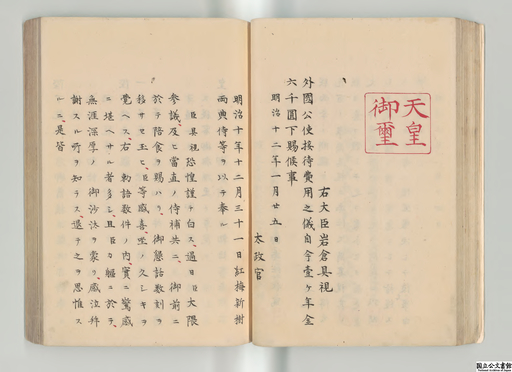 天皇
御璽
右大臣岩倉具視
外國公使接待費用之儀自今壹ケ年金
六千圓下賜候事
明治十二年一月廿五日
太政官
明治十年十二月三十一日紅梅新樹
両典侍等ヲ以テ奉ル
臣具視恐惶謹テ白ス過日大隈
参議及ヒ當直ノ侍補共ニ御前ニ
於テ陪食ヲ賜ハリ御懇話数刻ヲ
移サセ玉ヒ臣等感喜坐ノ久シキヲ
覺ヘス右勅語数件ノ内實ニ驚感
ニ堪ヘサル者多シ且臣々軀ニ於テ
無涯深厚ノ御沙汰ヲ蒙リ感泣拜
謝スル所ヲ知ラス退テ之ヲ思惟ス
ルニ是皆
国立公文書館
National Archives of Japan